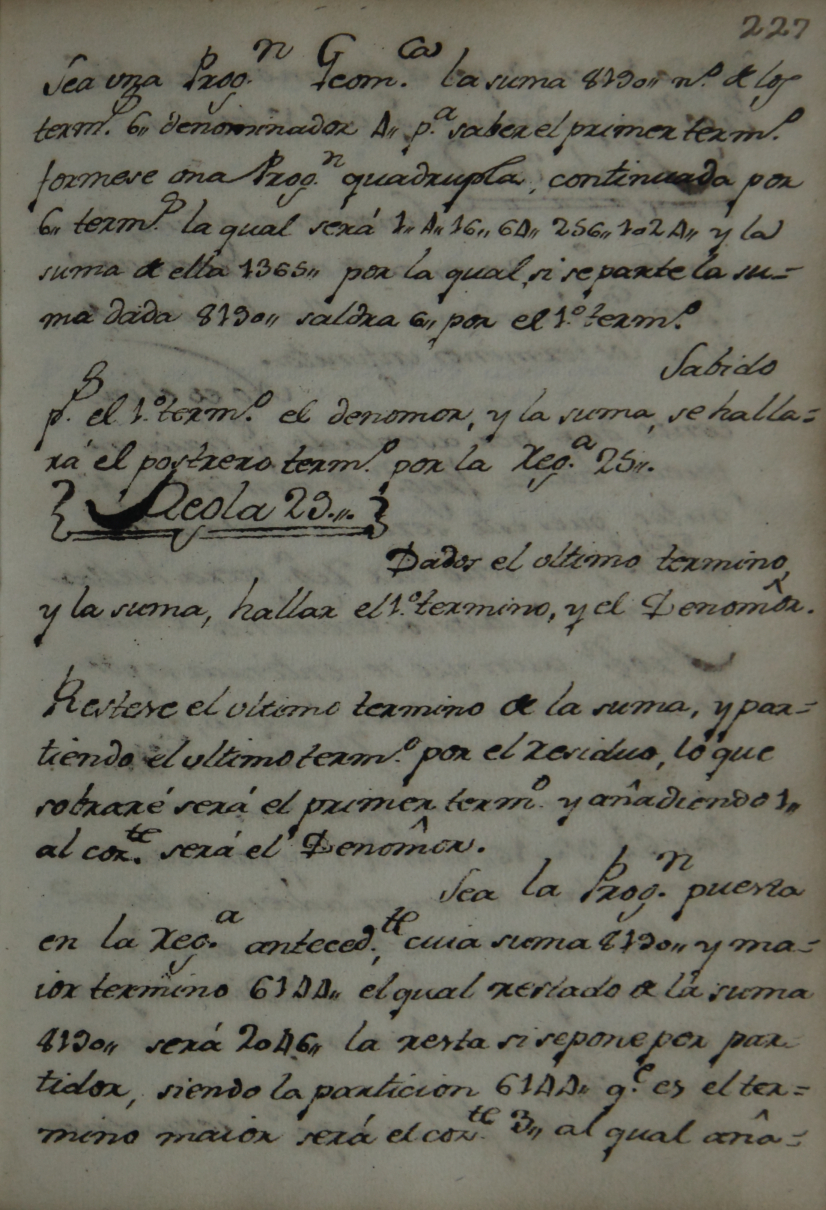 227
Sea vna Prog.n Geom.ca la suma 8190,, n.o de los
term.os 6,, denominador 4,, p.a saber el primer term.o
formese una Prog.n quadrupla, continuada por
6,, term.os la qual será 1,, 4,, 16,, 64,, 256,, 1024,, y la
suma de ella 1365,, por la qual, si se parte la su=
ma dada 8190,, saldra 6,, por el 1.o term.o
Sabido
p.s el 1.o term.o el denomor, y la suma, se halla=
rá el postrero term.o por la Reg.a 25,,.
Regla 29,,.
Dados el ultimo termino,
y la suma, hallar el 1.o termino, y el Denomôr.
Restese el vltimo termino de la suma, y par=
tiendo el vltimo term.o por el residuo, lo que
sobraré será el primer term.o y añadiendo 1,,
al cor.te será el Denomôr.
Sea la Prog.n puesta
en la Reg.a anteced.te, cuia suma 8190,, y ma=
ior termino 6144,, el qual restado de la suma
8190,, será 2046,, la resta si se pone por par
tidor, siendo la particion 6144,, q.e es el ter=
mino maior será el cor.te 3,, al qual aña=